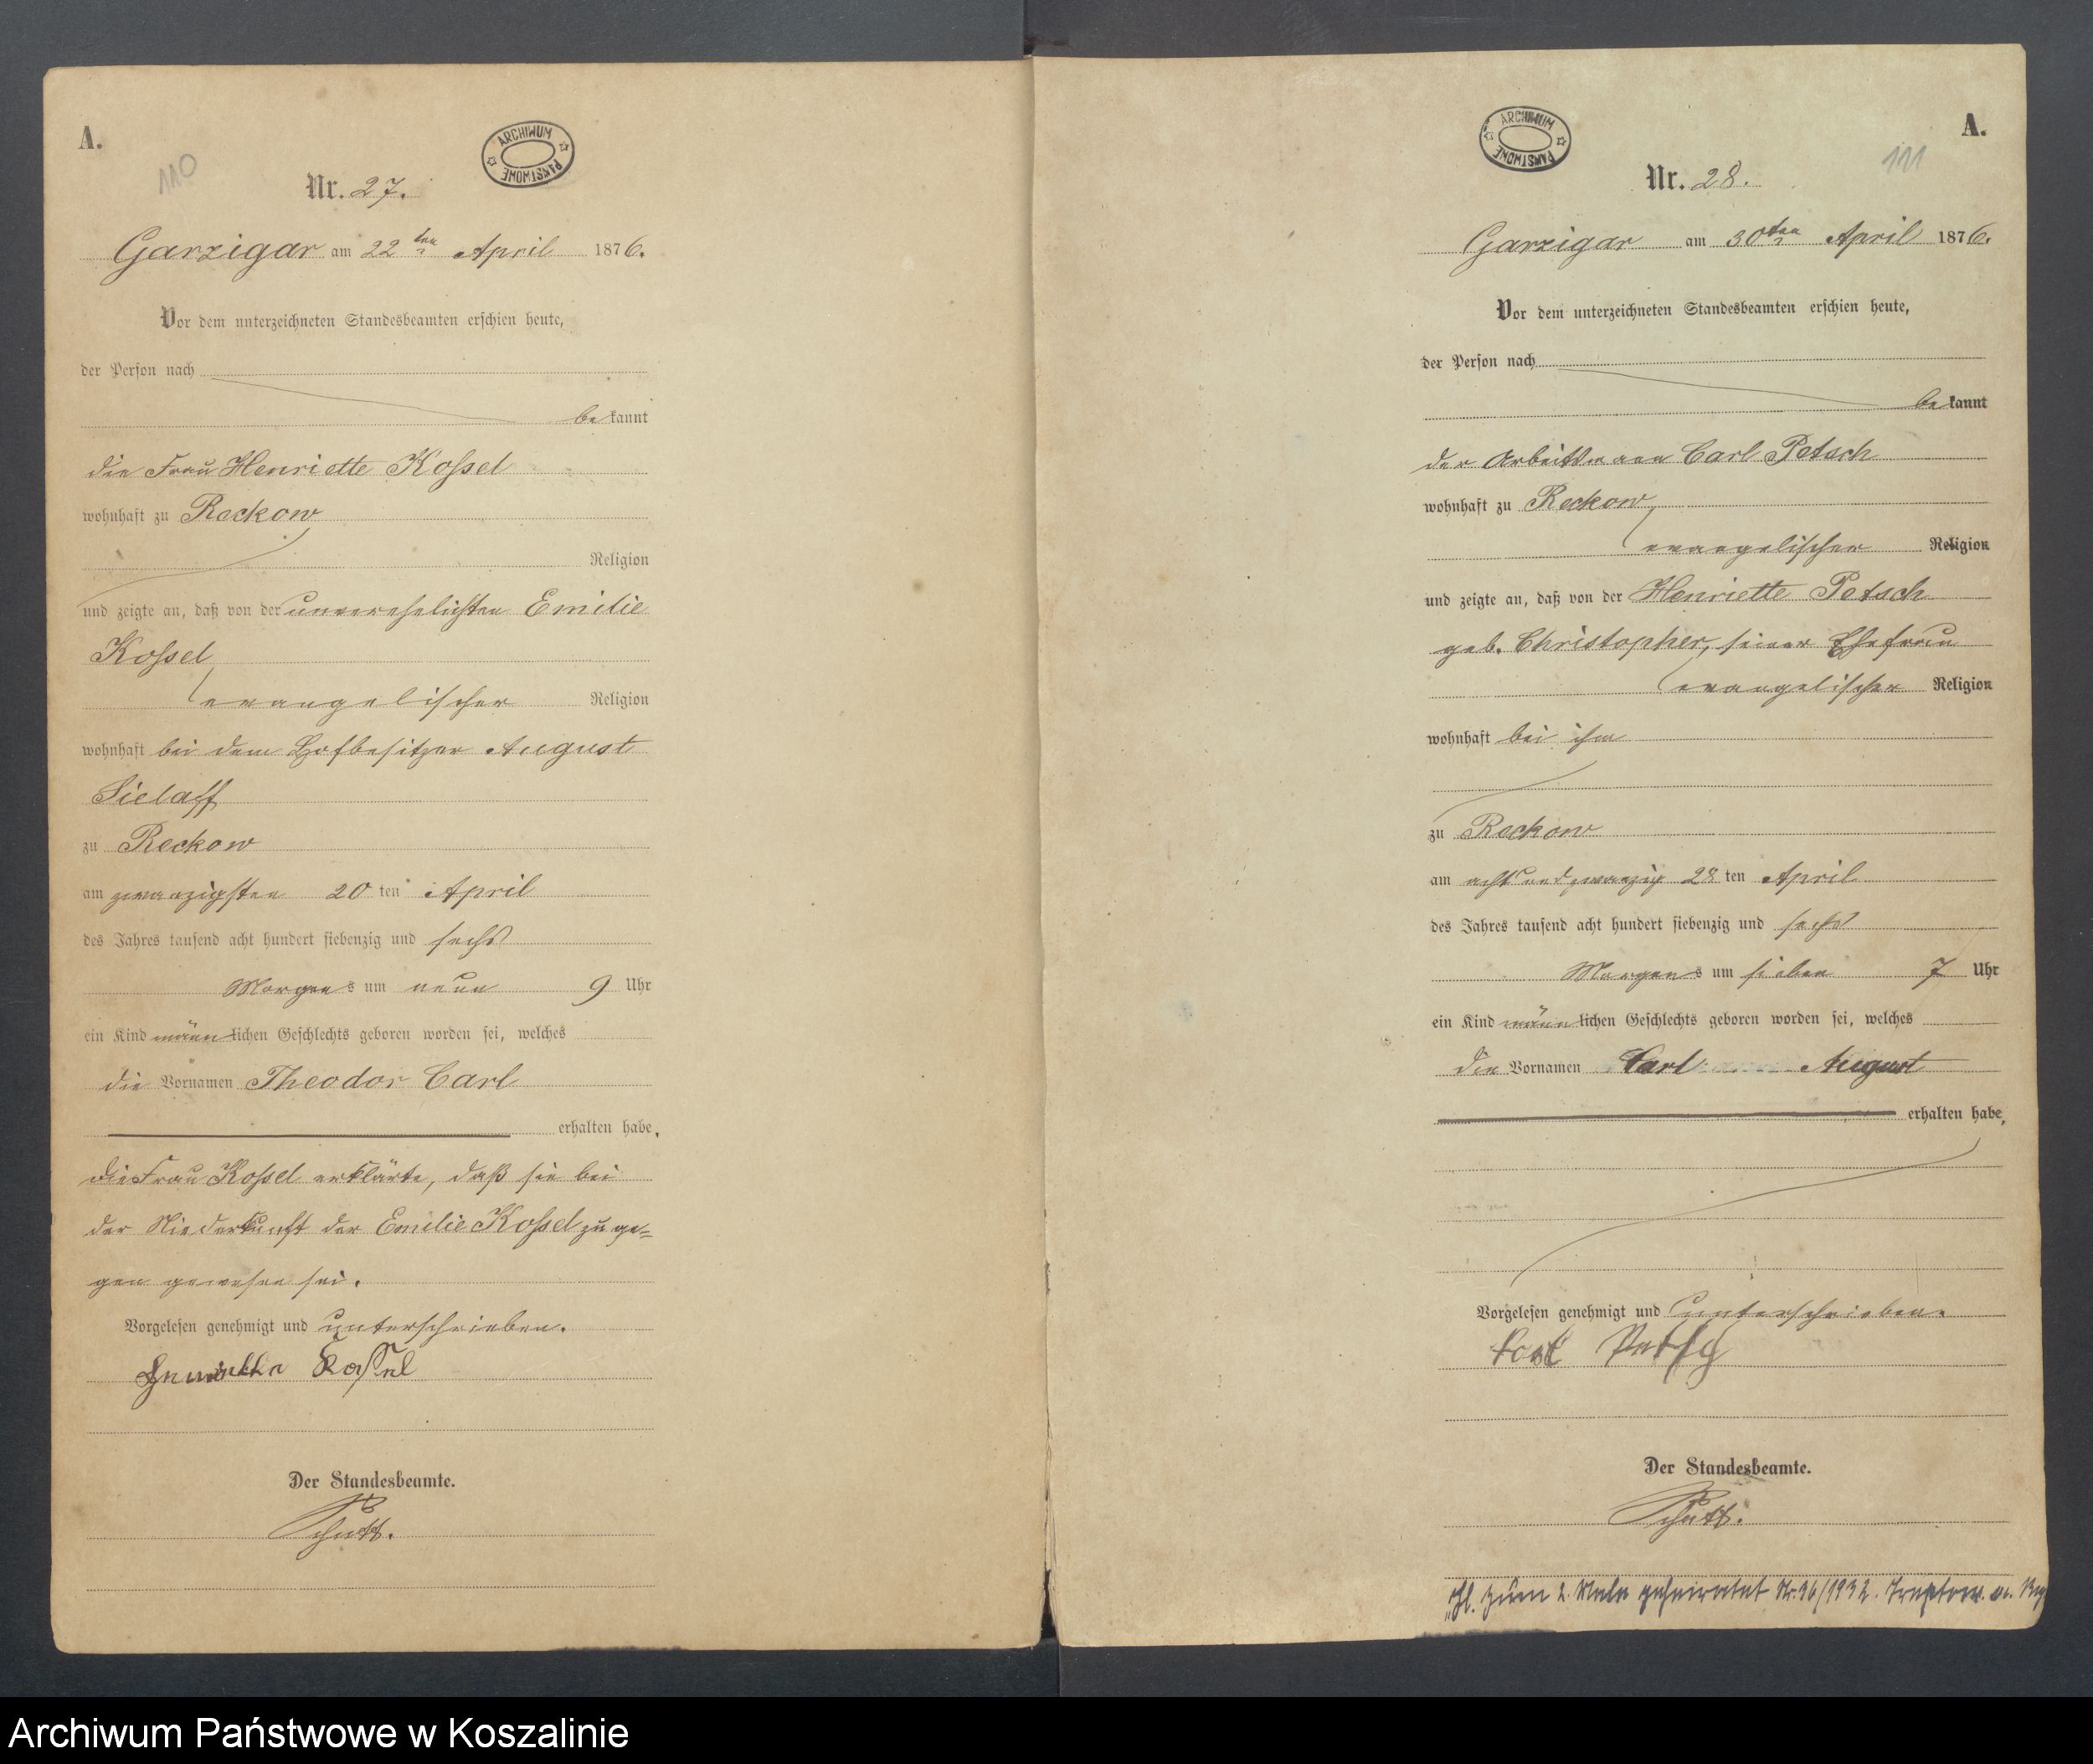 A.
110
ARCHIWUM PAŃSTWOWE
Nr. 27.
Garzigar am 22ten April 1876.
Vor dem unterzeichneten Standesbeamten erschien heute,
der Person nach
bekannt
die Frau Henriette Kossel
wohnhaft zu Reckow
Religion
und zeigte an, daß von der unverehelichten Emilie
Kossel
evangelischer Religion
wohnhaft bei dem Hofbesitzer August
Sielaff
zu Reckow
am zwanzigsten 20 ten April
des Jahres tausend acht hundert siebenzig und sechs
Morgens um neun 9 Uhr
ein Kind männlichen Geschlechts geboren worden sei, welches
die Vornamen Theodor Carl
erhalten habe,
die Frau Kossel erklärte, daß sie bei
der Niederkunft der Emilie Kossel zuge=
gen gewesen sei.
Vorgelesen genehmigt und unterschrieben.
Henriette Kossel
Der Standesbeamte.
A.
111
ARCHIWUM PAŃSTWOWE
Nr. 28.
Garzigar am 30ten April 1876.
Vor dem unterzeichneten Standesbeamten erschien heute,
der Person nach
bekannt
der Arbeitsmann Carl Petsch
wohnhaft zu Reckow
evangelischer Religion
und zeigte an, daß von der Henriette Petsch
geb. Christopher, seiner Ehefrau
evangelischer Religion
wohnhaft bei ihm
zu Reckow
am acht und zwanzig 28 ten April
des Jahres tausend acht hundert siebenzig und sechs
Morgens um sieben 7 Uhr
ein Kind männlichen Geschlechts geboren worden sei, welches
die Vornamen Carl August
erhalten habe,
Vorgelesen genehmigt und unterschrieben.
Carl Petsch
Der Standesbeamte.
zum 2. Male geheiratet Nr. 36/1932. Treptow a.
Archiwum Państwowe w Koszalinie